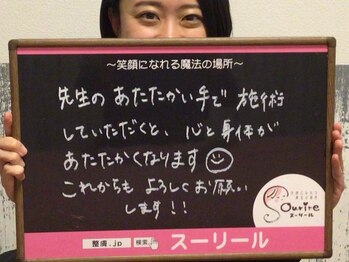 ～笑顔になれる魔法の場所～
先生の あたたかい手で 施術
していただくと、心と身体が
あたたかくなります
これからも よろしくお願い
します!!
Sourire
スーリール
整膚.jp 検索
スーリール